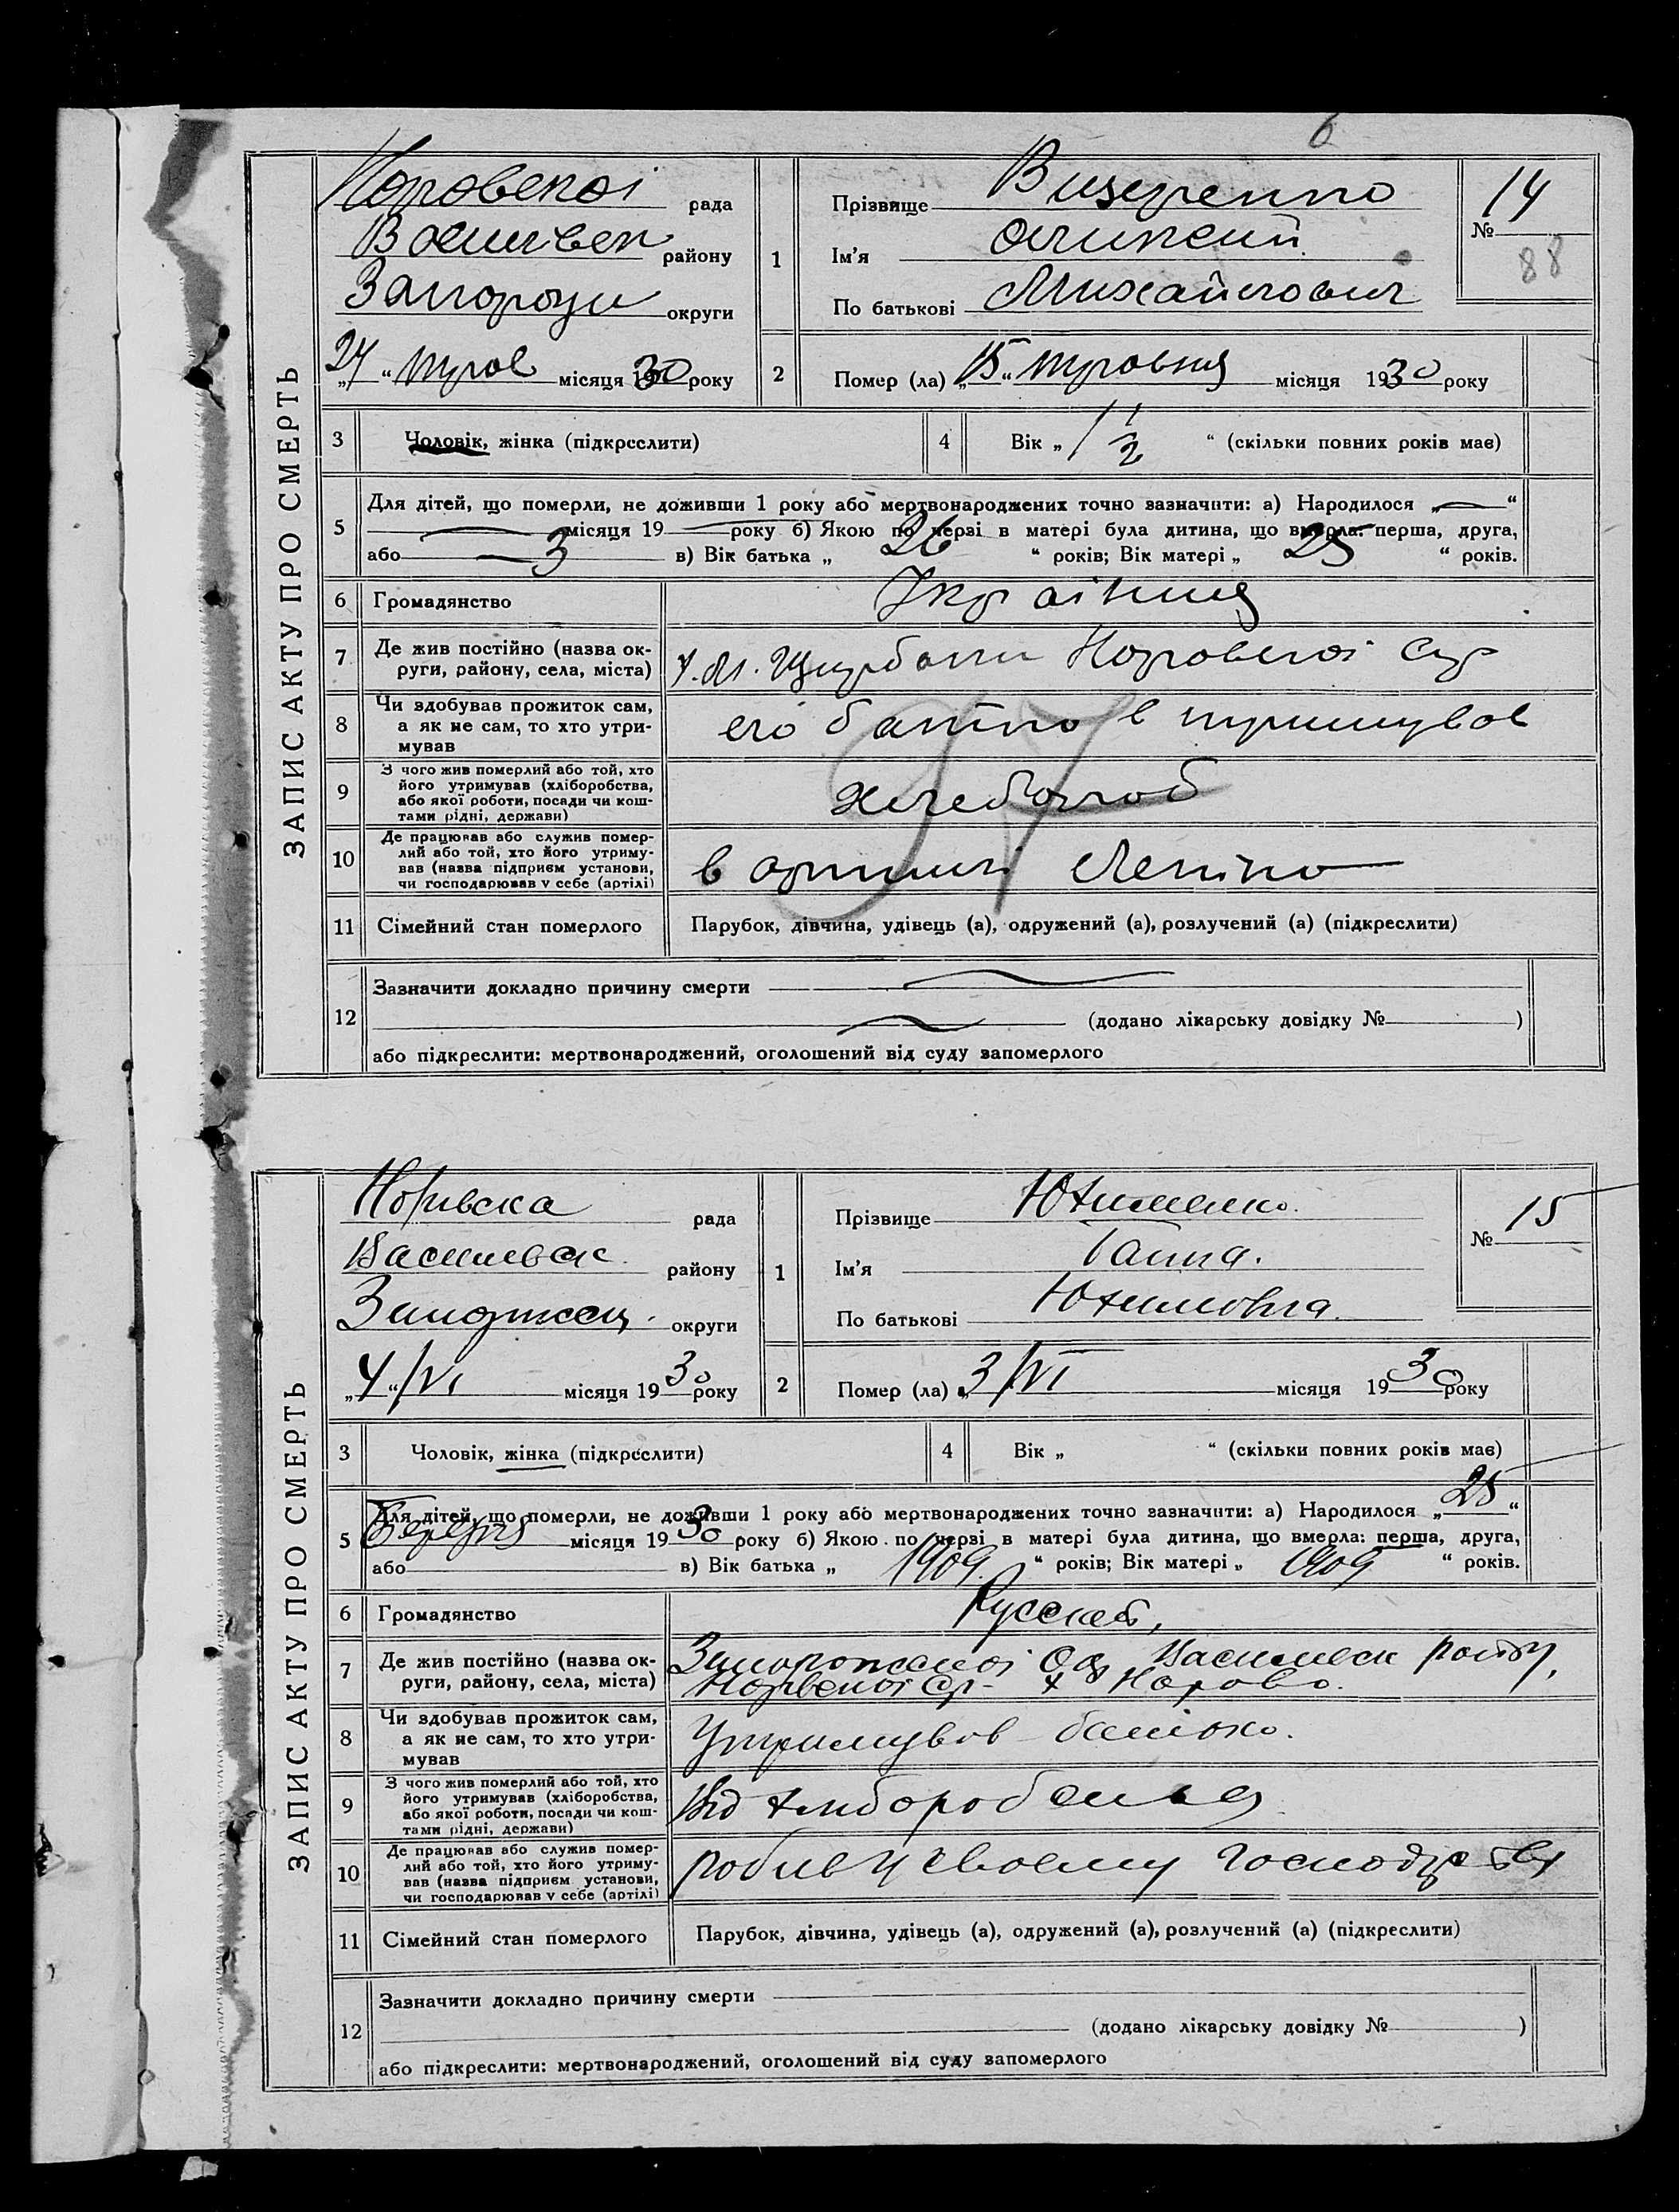 6
ЗАПИС АКТУ ПРО СМЕРТЬ
рада
району
Запорози округи
"24" трав місяця 1930 року
1
Прізвище
Ім'я
По батькові Михайлович
№ 14
88
2
Помер (ла) "15" травня місяця 1930 року
3 Чоловік, жінка (підкреслити)
4 Вік " 1 1/2 " (скільки повних років має)
5 Для дітей, що померли, не доживши 1 року або мертвонароджених точно зазначити: а) Народилося „ — "
— місяця 19 — року б) Якою по черзі в матері була дитина, що вмерла: перша, друга,
або 3 в) Вік батька „ 26 " років; Вік матері „ 25 " років.
6 Громадянство
7 Де жив постійно (назва ок-
руги, району, села, міста)
8 Чи здобував прожиток сам,
а як не сам, то хто утри-
мував
его батько в тримував
9 З чого жив померлий або той, хто
його утримував (хліборобства,
або якої роботи, посади чи кош-
тами рідні, держави)
10 Де працював або служив помер-
лий або той, хто його утриму-
вав (назва підприєм установи,
чи господарював у себе (артілі)
в артилі Леніна
11 Сімейний стан померлого
Парубок, дівчина, удівець (а), одружений (а), розлучений (а) (підкреслити)
12 Зазначити докладно причину смерти —
— (додано лікарську довідку № )
або підкреслити: мертвонароджений, оголошений від суду запомерлого
ЗАПИС АКТУ ПРО СМЕРТЬ
рада
Василівск району
округи
"4"/VI місяця 1930 року
1
Прізвище Юхименко.
Ім'я Ганна.
По батькові Юхимовна.
№ 15
2
Помер (ла) „ 3/VI місяця 1930 року
3 Чоловік, жінка (підкреслити)
4 Вік „ " (скільки повних років має)
5 Для дітей, що померли, не доживши 1 року або мертвонароджених точно зазначити: а) Народилося „ 25 "
Березня місяця 1930 року б) Якою по черзі в матері була дитина, що вмерла: перша, друга,
або в) Вік батька „ 1909 " років; Вік матері „ 1909 " років.
6 Громадянство
7 Де жив постійно (назва ок-
руги, району, села, міста)
8 Чи здобував прожиток сам,
а як не сам, то хто утри-
мував
Утримував батько.
9 З чого жив померлий або той, хто
його утримував (хліборобства,
або якої роботи, посади чи кош-
тами рідні, держави)
Від хліборобства
10 Де працював або служив помер-
лий або той, хто його утриму-
вав (назва підприєм установи,
чи господарював у себе (артілі)
робив у своему господарстві
11 Сімейний стан померлого
Парубок, дівчина, удівець (а), одружений (а), розлучений (а) (підкреслити)
12 Зазначити докладно причину смерти
(додано лікарську довідку № )
або підкреслити: мертвонароджений, оголошений від суду запомерлого